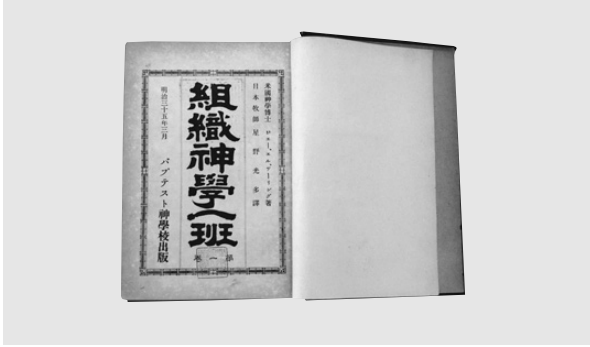 米國神學博士 エル、デーリング著
日本牧師 星野光多譯
組織神學一班
第一卷
明治三十五年三月
バプテスト神學校出版